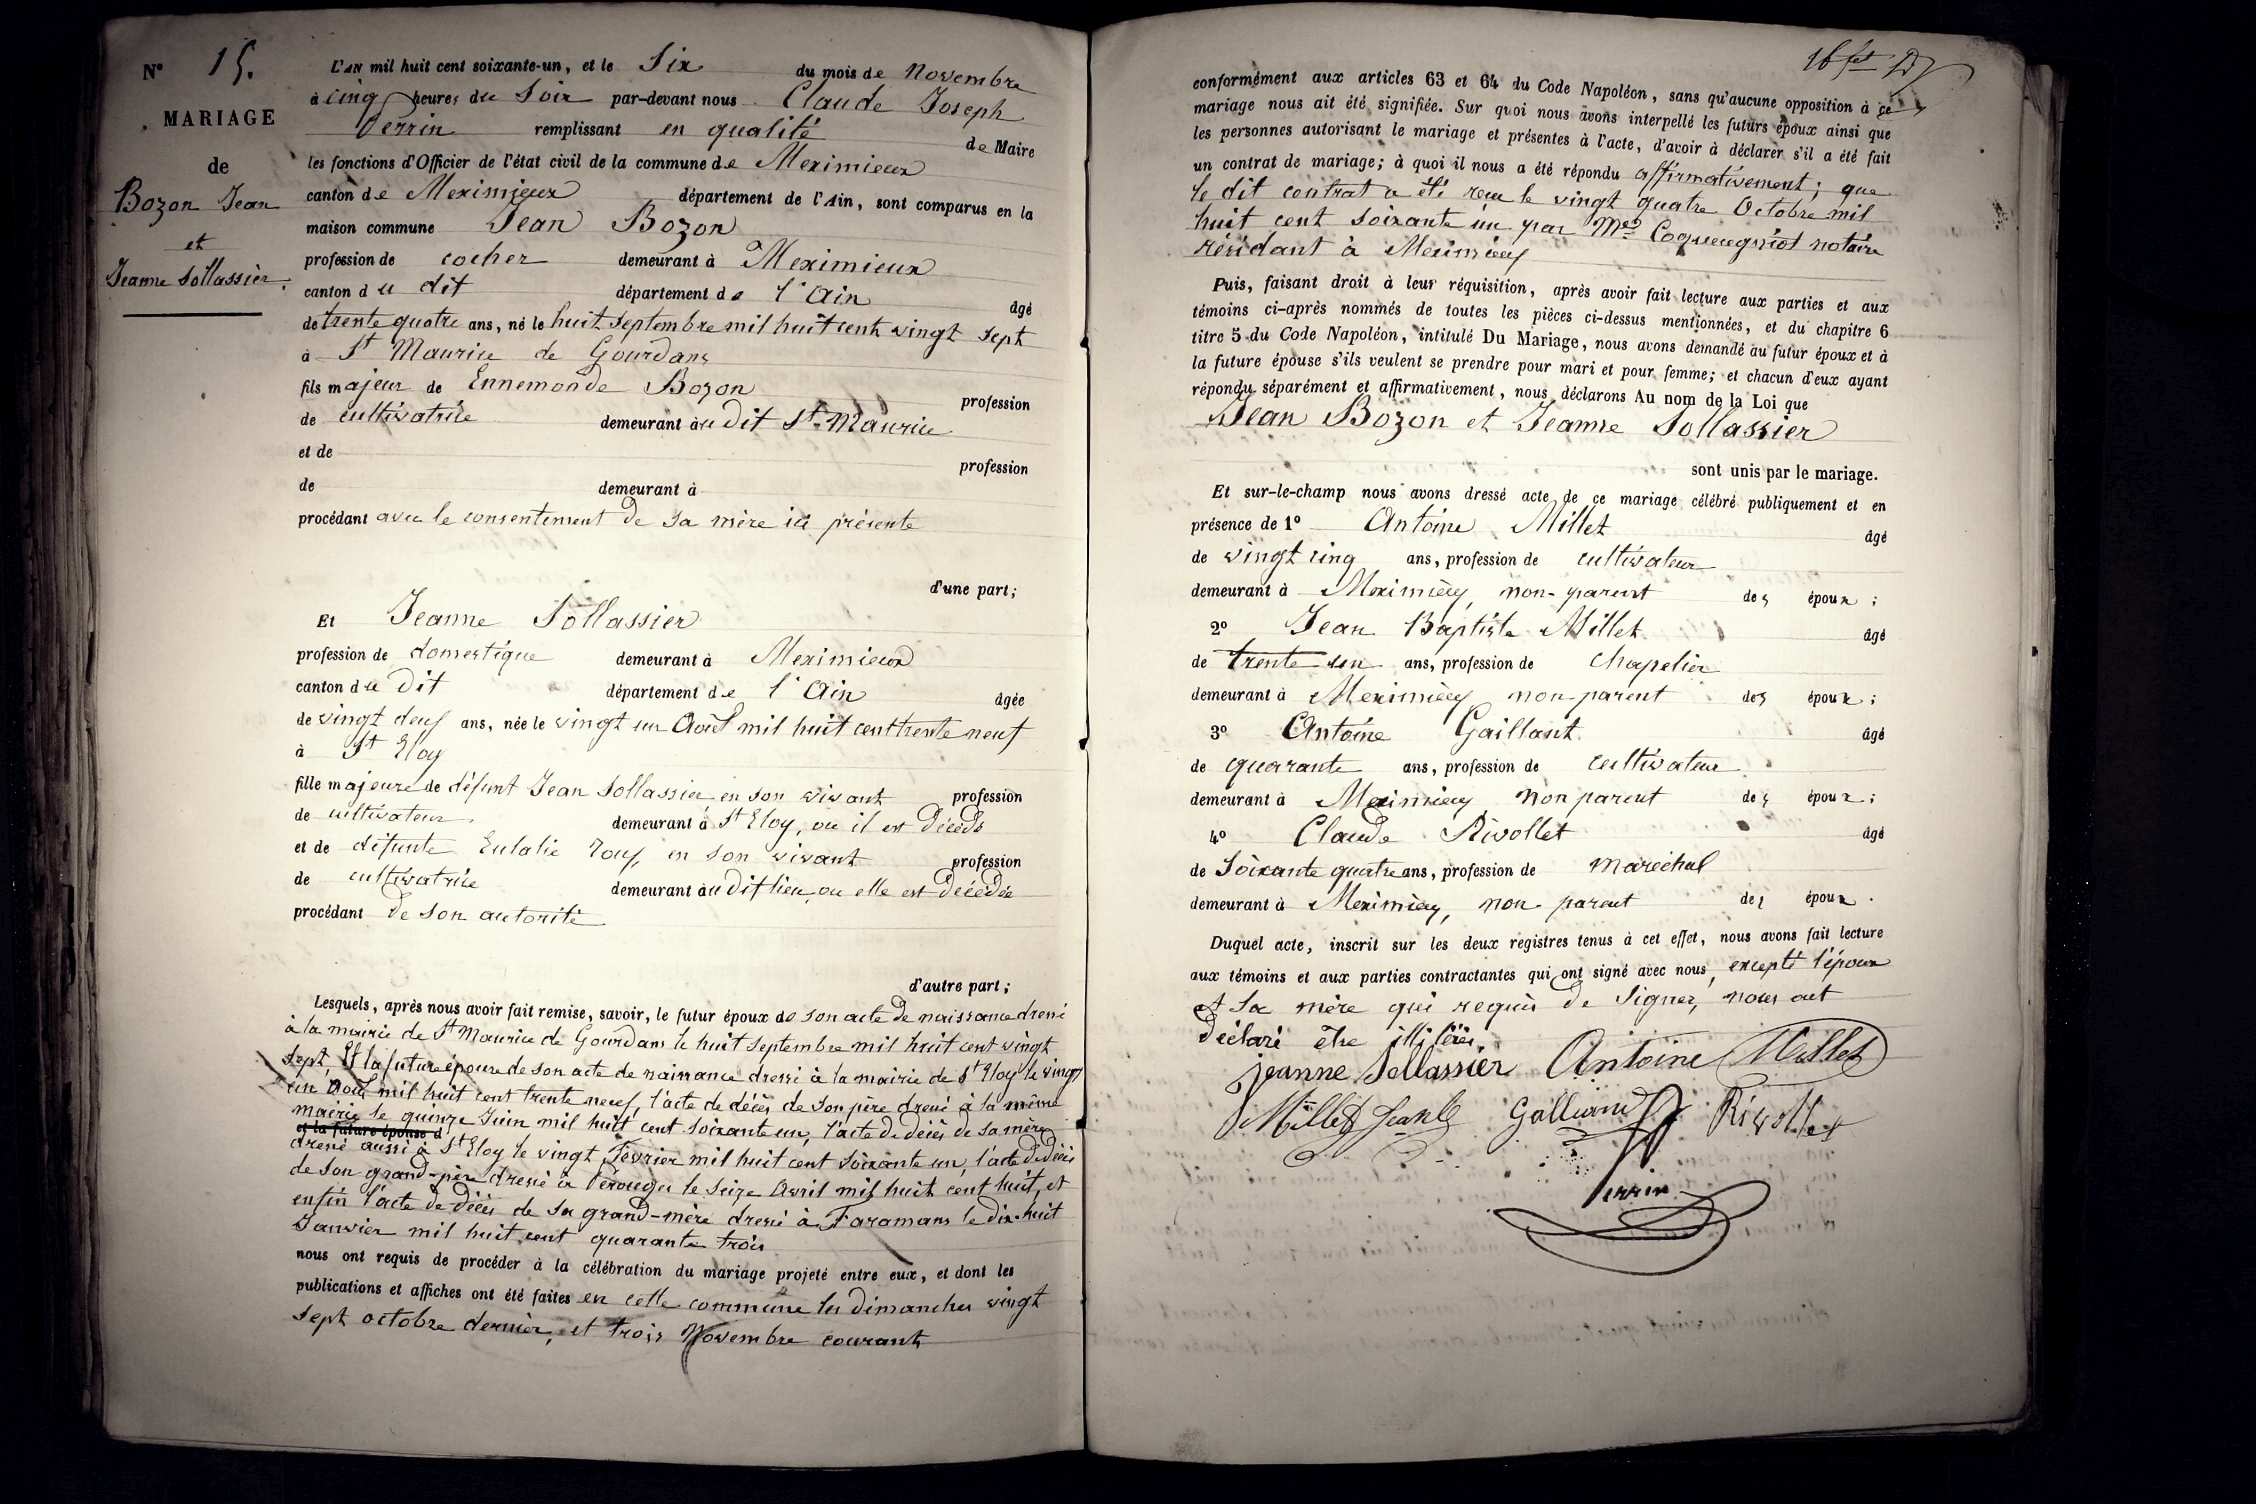 N° 15.
MARIAGE
de
Bozon Jean
et
Jeanne Sollassier.
L'AN mil huit cent soixante-un, et le Six du mois de Novembre
à cinq heures du Soir par-devant nous Claude Joseph
Perrin remplissant en qualité de Maire
les fonctions d'Officier de l'état civil de la commune de Meximieux
canton de Meximieux département de l'Ain, sont comparus en la
maison commune Jean Bozon
profession de cocher demeurant à Meximieux
canton du dit département de l'Ain âgé
de trente quatre ans, né le huit Septembre mil huit cent vingt sept
à St Maurice de Gourdans
fils majeur de Ennemonde Bozon profession
de cultivatrice demeurant au dit St Maurice
et de profession
de demeurant à
procédant avec le consentement de sa mère ici présente
d'une part;
Et Jeanne Sollassier
profession de domestique demeurant à Meximieux
canton du dit département de l'Ain âgée
de vingt deux ans, née le vingt un Août mil huit cent trente neuf
à St Eloy
fille majeure de défunt Jean Sollassier en son vivant profession
de cultivateur demeurant à St Eloy, ou il est décédé
et de défunte Eulalie Roux, en son vivant profession
de cultivatrice demeurant au dit lieu, ou elle est décédée
procédant de son autorité
d'autre part;
Lesquels, après nous avoir fait remise, savoir, le futur époux de son acte de naissance dressé
à la mairie de St Maurice de Gourdans le huit Septembre mil huit cent vingt
sept, Et la future épouse de son acte de naissance dressé à la mairie de St Eloy le vingt
un Août mil huit cent trente neuf, l'acte de décès de son père dressé à la même
mairie le quinze Juin mil huit cent soixante un, l'acte de décès de sa mère
et la future épouse d
dressé aussi à St Eloy le vingt Février mil huit cent soixante un, l'acte de décès
de son grand-père dressé à Pérouges le Seize Avril mil huit cent huit, et
enfin l'acte de décès de sa grand-mère dressé à Faramans le dix-huit
Janvier mil huit cent quarante trois
nous ont requis de procéder à la célébration du mariage projeté entre eux, et dont les
publications et affiches ont été faites en cette commune les dimanches vingt
sept octobre dernier, et trois Novembre courant
16 fet
conformément aux articles 63 et 64 du Code Napoléon, sans qu'aucune opposition à ce
mariage nous ait été signifiée. Sur quoi nous avons interpellé les futurs époux ainsi que
les personnes autorisant le mariage et présentes à l'acte, d'avoir à déclarer s'il a été fait
un contrat de mariage; à quoi il nous a été répondu affirmativement; que
le dit contrat a été reçu le vingt quatre Octobre mil
huit cent soixante un par Me notaire
résidant à Meximieux
Puis, faisant droit à leur réquisition, après avoir fait lecture aux parties et aux
témoins ci-après nommés de toutes les pièces ci-dessus mentionnées, et du chapitre 6
titre 5 du Code Napoléon, intitulé Du Mariage, nous avons demandé au futur époux et à
la future épouse s'ils veulent se prendre pour mari et pour femme; et chacun d'eux ayant
répondu séparément et affirmativement, nous déclarons Au nom de la Loi que
Jean Bozon et Jeanne Sollassier
sont unis par le mariage.
Et sur-le-champ nous avons dressé acte de ce mariage célébré publiquement et en
présence de 1° Antoine Millet âgé
de vingt cinq ans, profession de cultivateur
demeurant à Meximieux, non-parent des époux;
2° Jean Baptiste Millet âgé
de trente ans, profession de chapelier
demeurant à Meximieux non-parent des époux;
3° Antoine Gaillant âgé
de quarante ans, profession de cultivateur
demeurant à Meximieux Non parent des époux;
4° Claude Rivollet âgé
de Soixante quatre ans, profession de maréchal
demeurant à Meximieux, non-parent des époux.
Duquel acte, inscrit sur les deux registres tenus à cet effet, nous avons fait lecture
aux témoins et aux parties contractantes qui ont signé avec nous, excepté l'époux
et Sa mère qui requis de signer, nous ont
déclaré être illitérés.
jeanne Sollassier Antoine Millet
Millet Jean Rivollet
Perrin